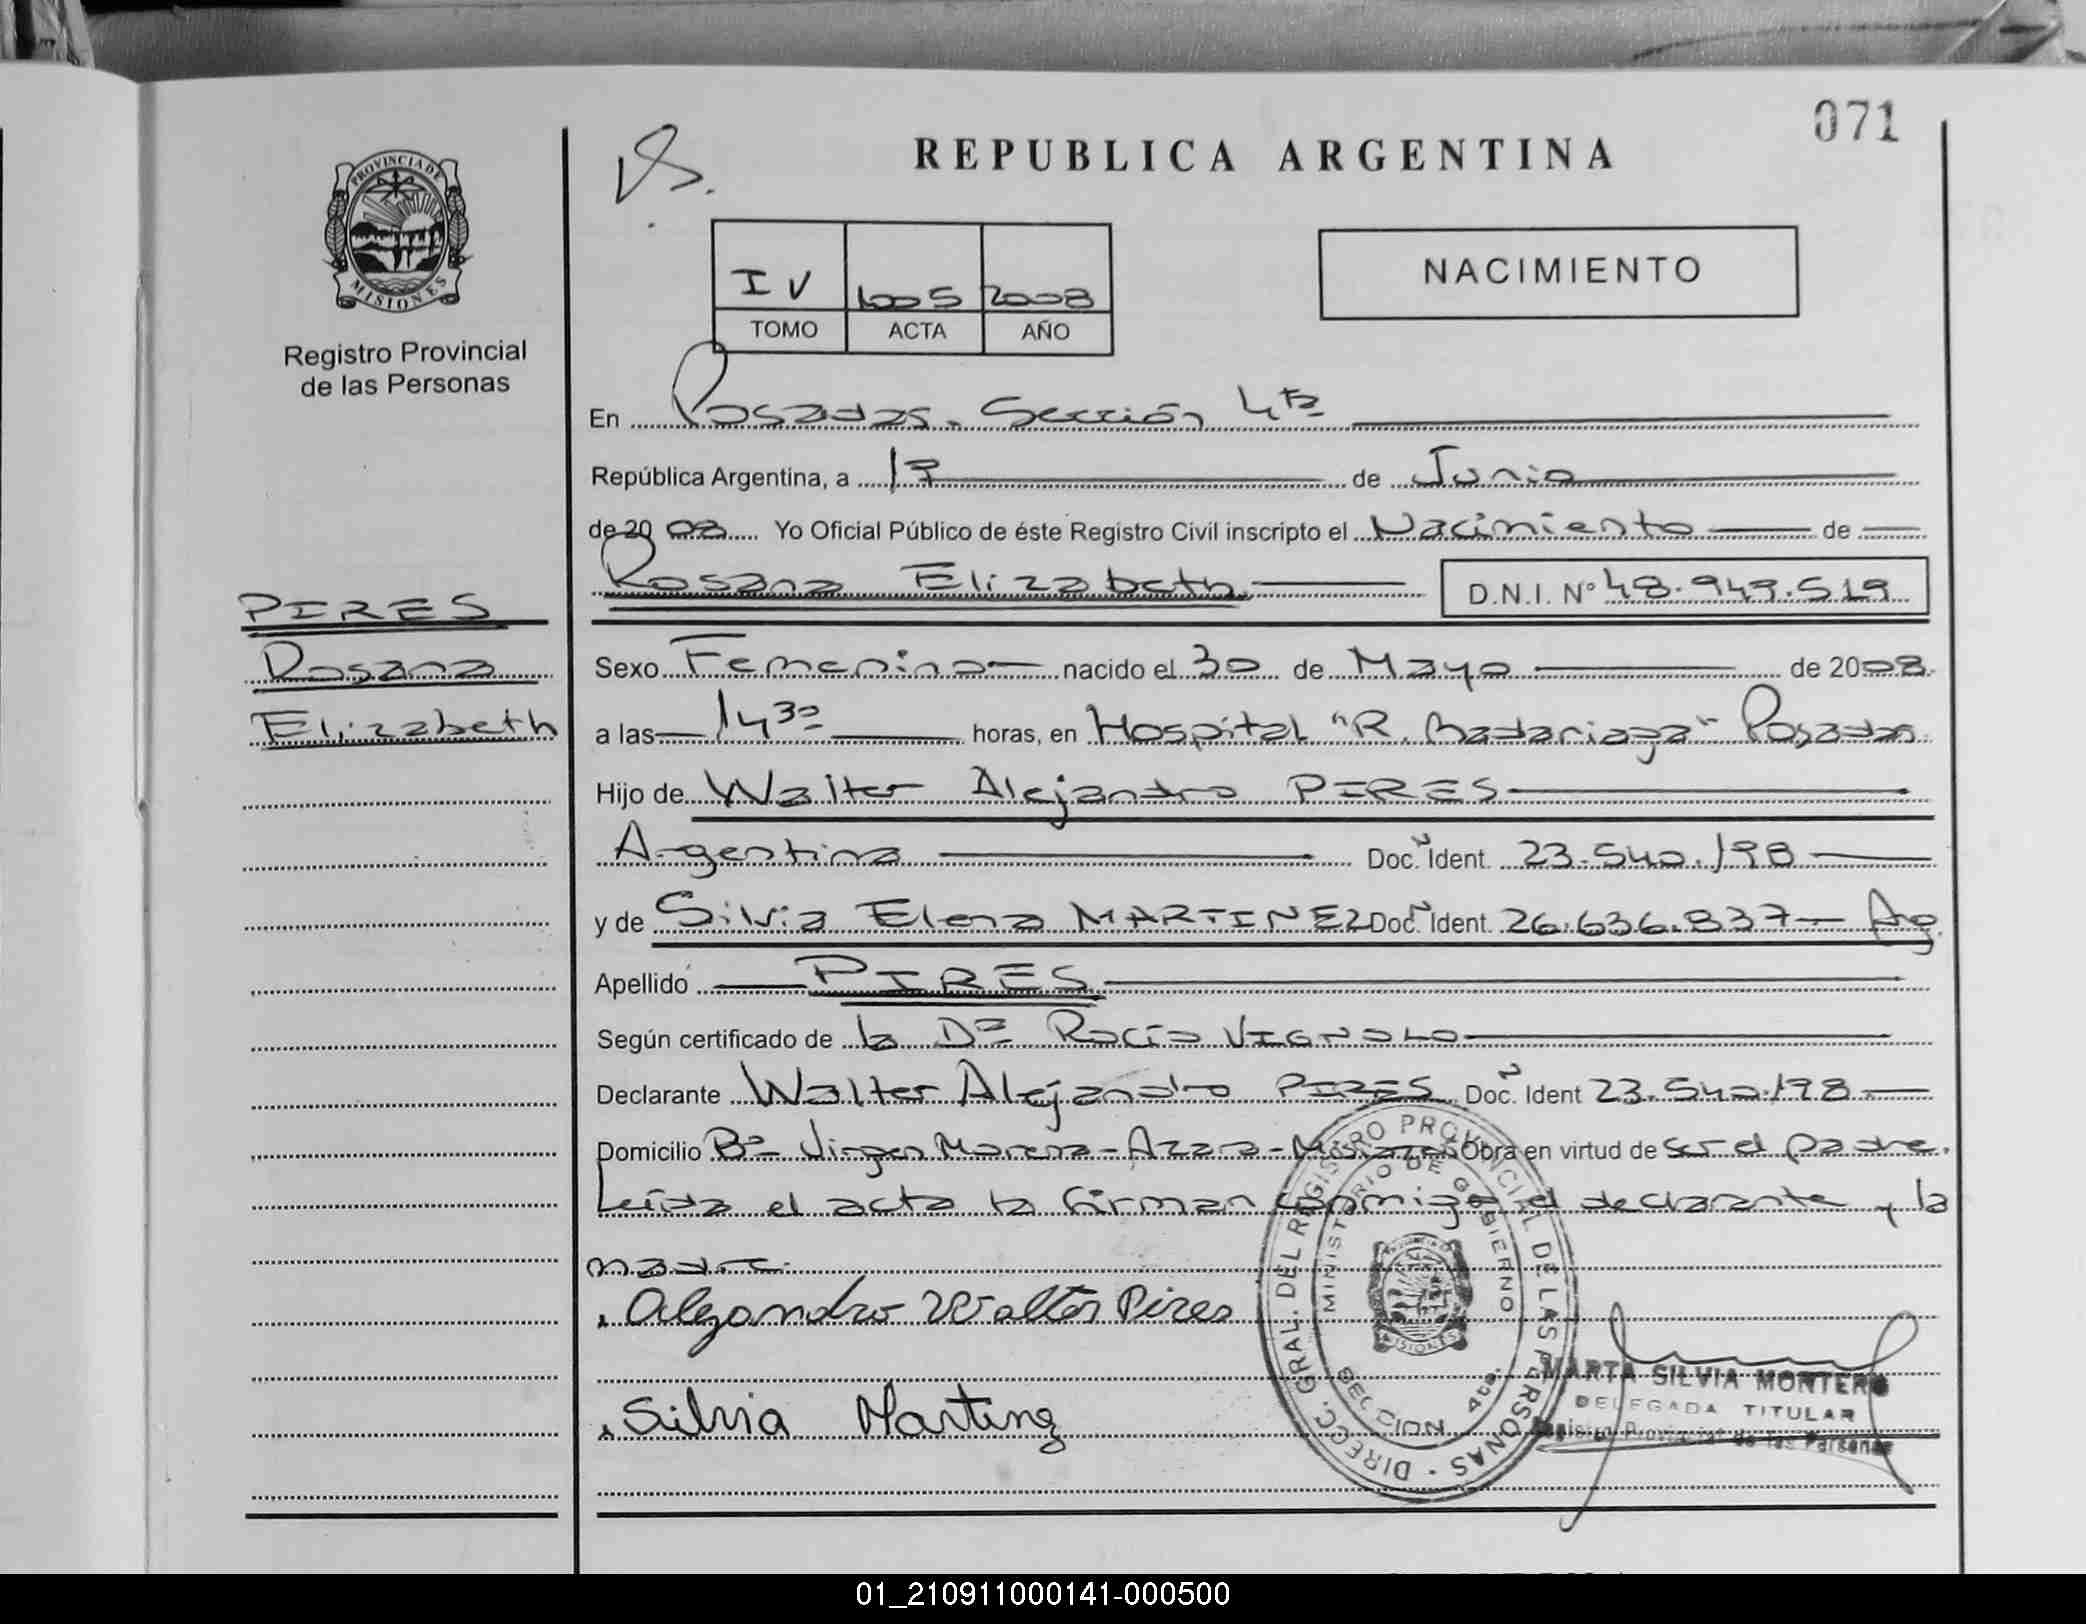 071
REPUBLICA ARGENTINA
PROVINCIA DE
MISIONES
Registro Provincial
de las Personas
IV 1005 2008
TOMO ACTA AÑO
NACIMIENTO
En Posadas. Sección 4ta
República Argentina, a 17 de Junio
de 2008 Yo Oficial Público de éste Registro Civil inscripto el Nacimiento de
Rosana Elizabeth. D.N.I. Nº 48.949.519
PIRES
Rosana
Elizabeth
Sexo Femenino nacido el 30 de Mayo de 2008.
a las 14 30 horas, en Hospital "R. Madariaga" Posadas.
Hijo de Walter Alejandro PIRES
Argentina Doc. Ident. 23.540.198
y de Silvia Elena MARTINEZ Doc. Ident. 26.636.837 Arg.
Apellido PIRES
Según certificado de la Dra Rocío VIGNOLO
Declarante Walter Alejandro PIRES Doc. Ident 23.540.198.
Domicilio Bº Virgen Morena - Azara - Misiones Obra en virtud de ser el padre.
Leída el acta la firman conmigo el declarante y la
madre.
Alejandro Walter Pires
Silvia Martinez
DIRECC. GRAL. DEL REGISTRO PROVINCIAL DE LAS PERSONAS
MINISTERIO DE GOBIERNO
SECCION 4ta.
MISIONES
MARTA SILVIA MONTERO
DELEGADA TITULAR
Registro Provincial de las Personas
01_210911000141-000500